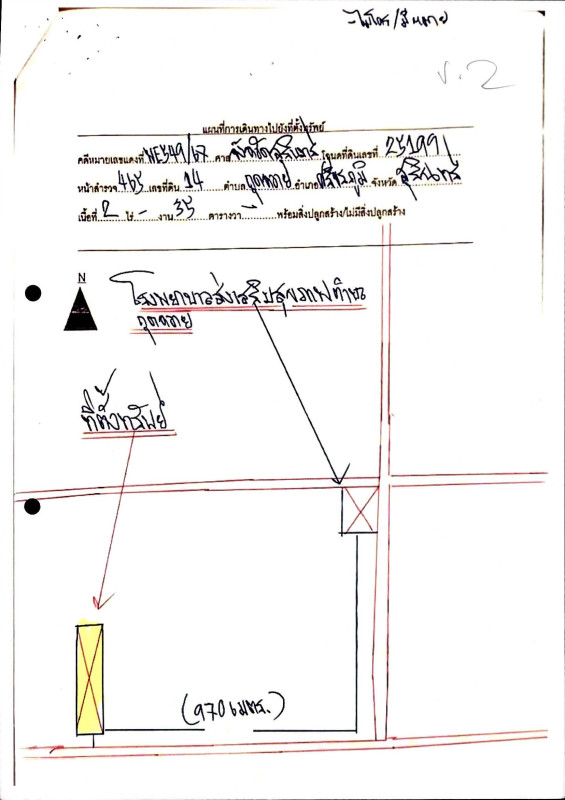 v.2
แผนที่การเดินทางไปยังที่ตั้งทรัพย์
คดีหมายเลขแดงที่ ผบE549/67 ศาล จังหวัดสุรินทร์ โฉนดที่ดินเลขที่ 25199
หน้าสำรวจ 465 เลขที่ดิน 14 ตำบล กุดหวาย อำเภอ ศีขรภูมิ จังหวัด สุรินทร์
เนื้อที่ 2 ไร่ - งาน 35 ตารางวา พร้อมสิ่งปลูกสร้าง/ไม่มีสิ่งปลูกสร้าง
N
โรงพยาบาลส่งเสริมสุขภาพตำบล
กุดหวาย
ที่ตั้งทรัพย์
(970 เมตร.)